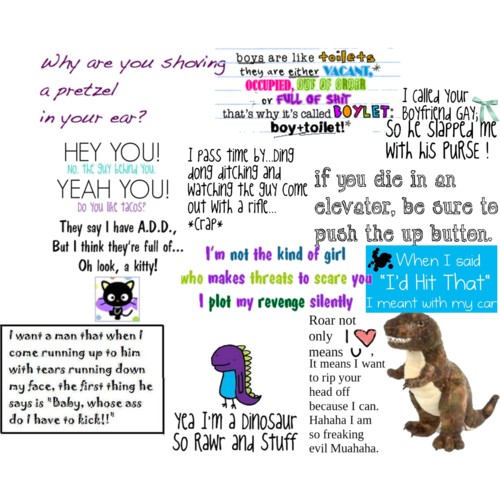 Why are you shoving
a pretzel
in your ear?
boys are like toilets
they are either VACANT,*
OCCUPIED, OUT OF ORDER
or FULL OF SHIT
that's why it's called BOYLET:
boy+toilet!*
I called Your
Boyfriend GAY,
So he slapped me
With his PURSE !
HEY YOU!
No, the guy behind you.
YEAH YOU!
Do you like tacos?
I pass time by...Ding
dong ditching and
watching the guy come
out with a rifle...
*Crap*
if you die in an
elevator, be sure to
push the up button.
They say I have A.D.D.,
But I think they're full of...
Oh look, a kitty!
I'm not the kind of girl
who makes threats to scare you
I plot my revenge silently
When I said
"I'd Hit That"
I meant with my car
I want a man that when I
come running up to him
with tears running down
my face, the first thing he
says is "Baby, whose ass
do I have to kick!!"
Yea I'm a Dinosaur
So Rawr and Stuff
Roar not
only I ♥
means U ,
It means I want
to rip your
head off
because I can.
Hahaha I am
so freaking
evil Muahaha.